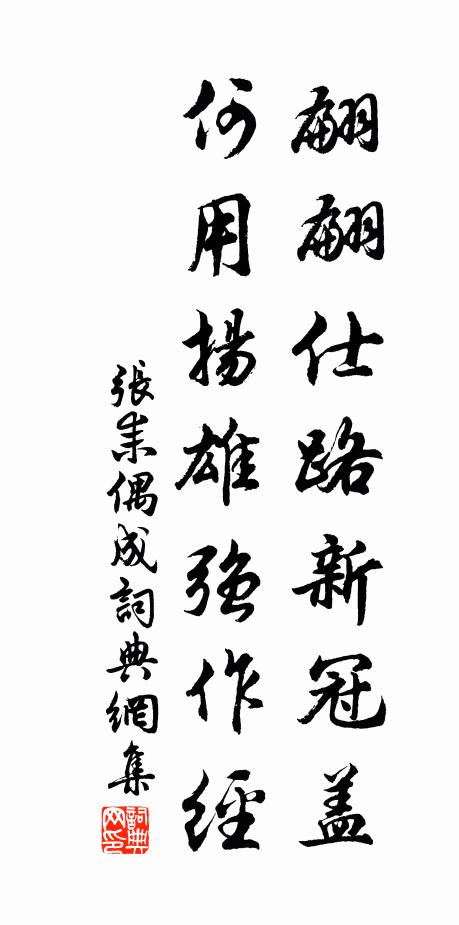 翩翩仕路新冠盖
何用揚雄強作經
張耒偶成詞典網集
詞典网印